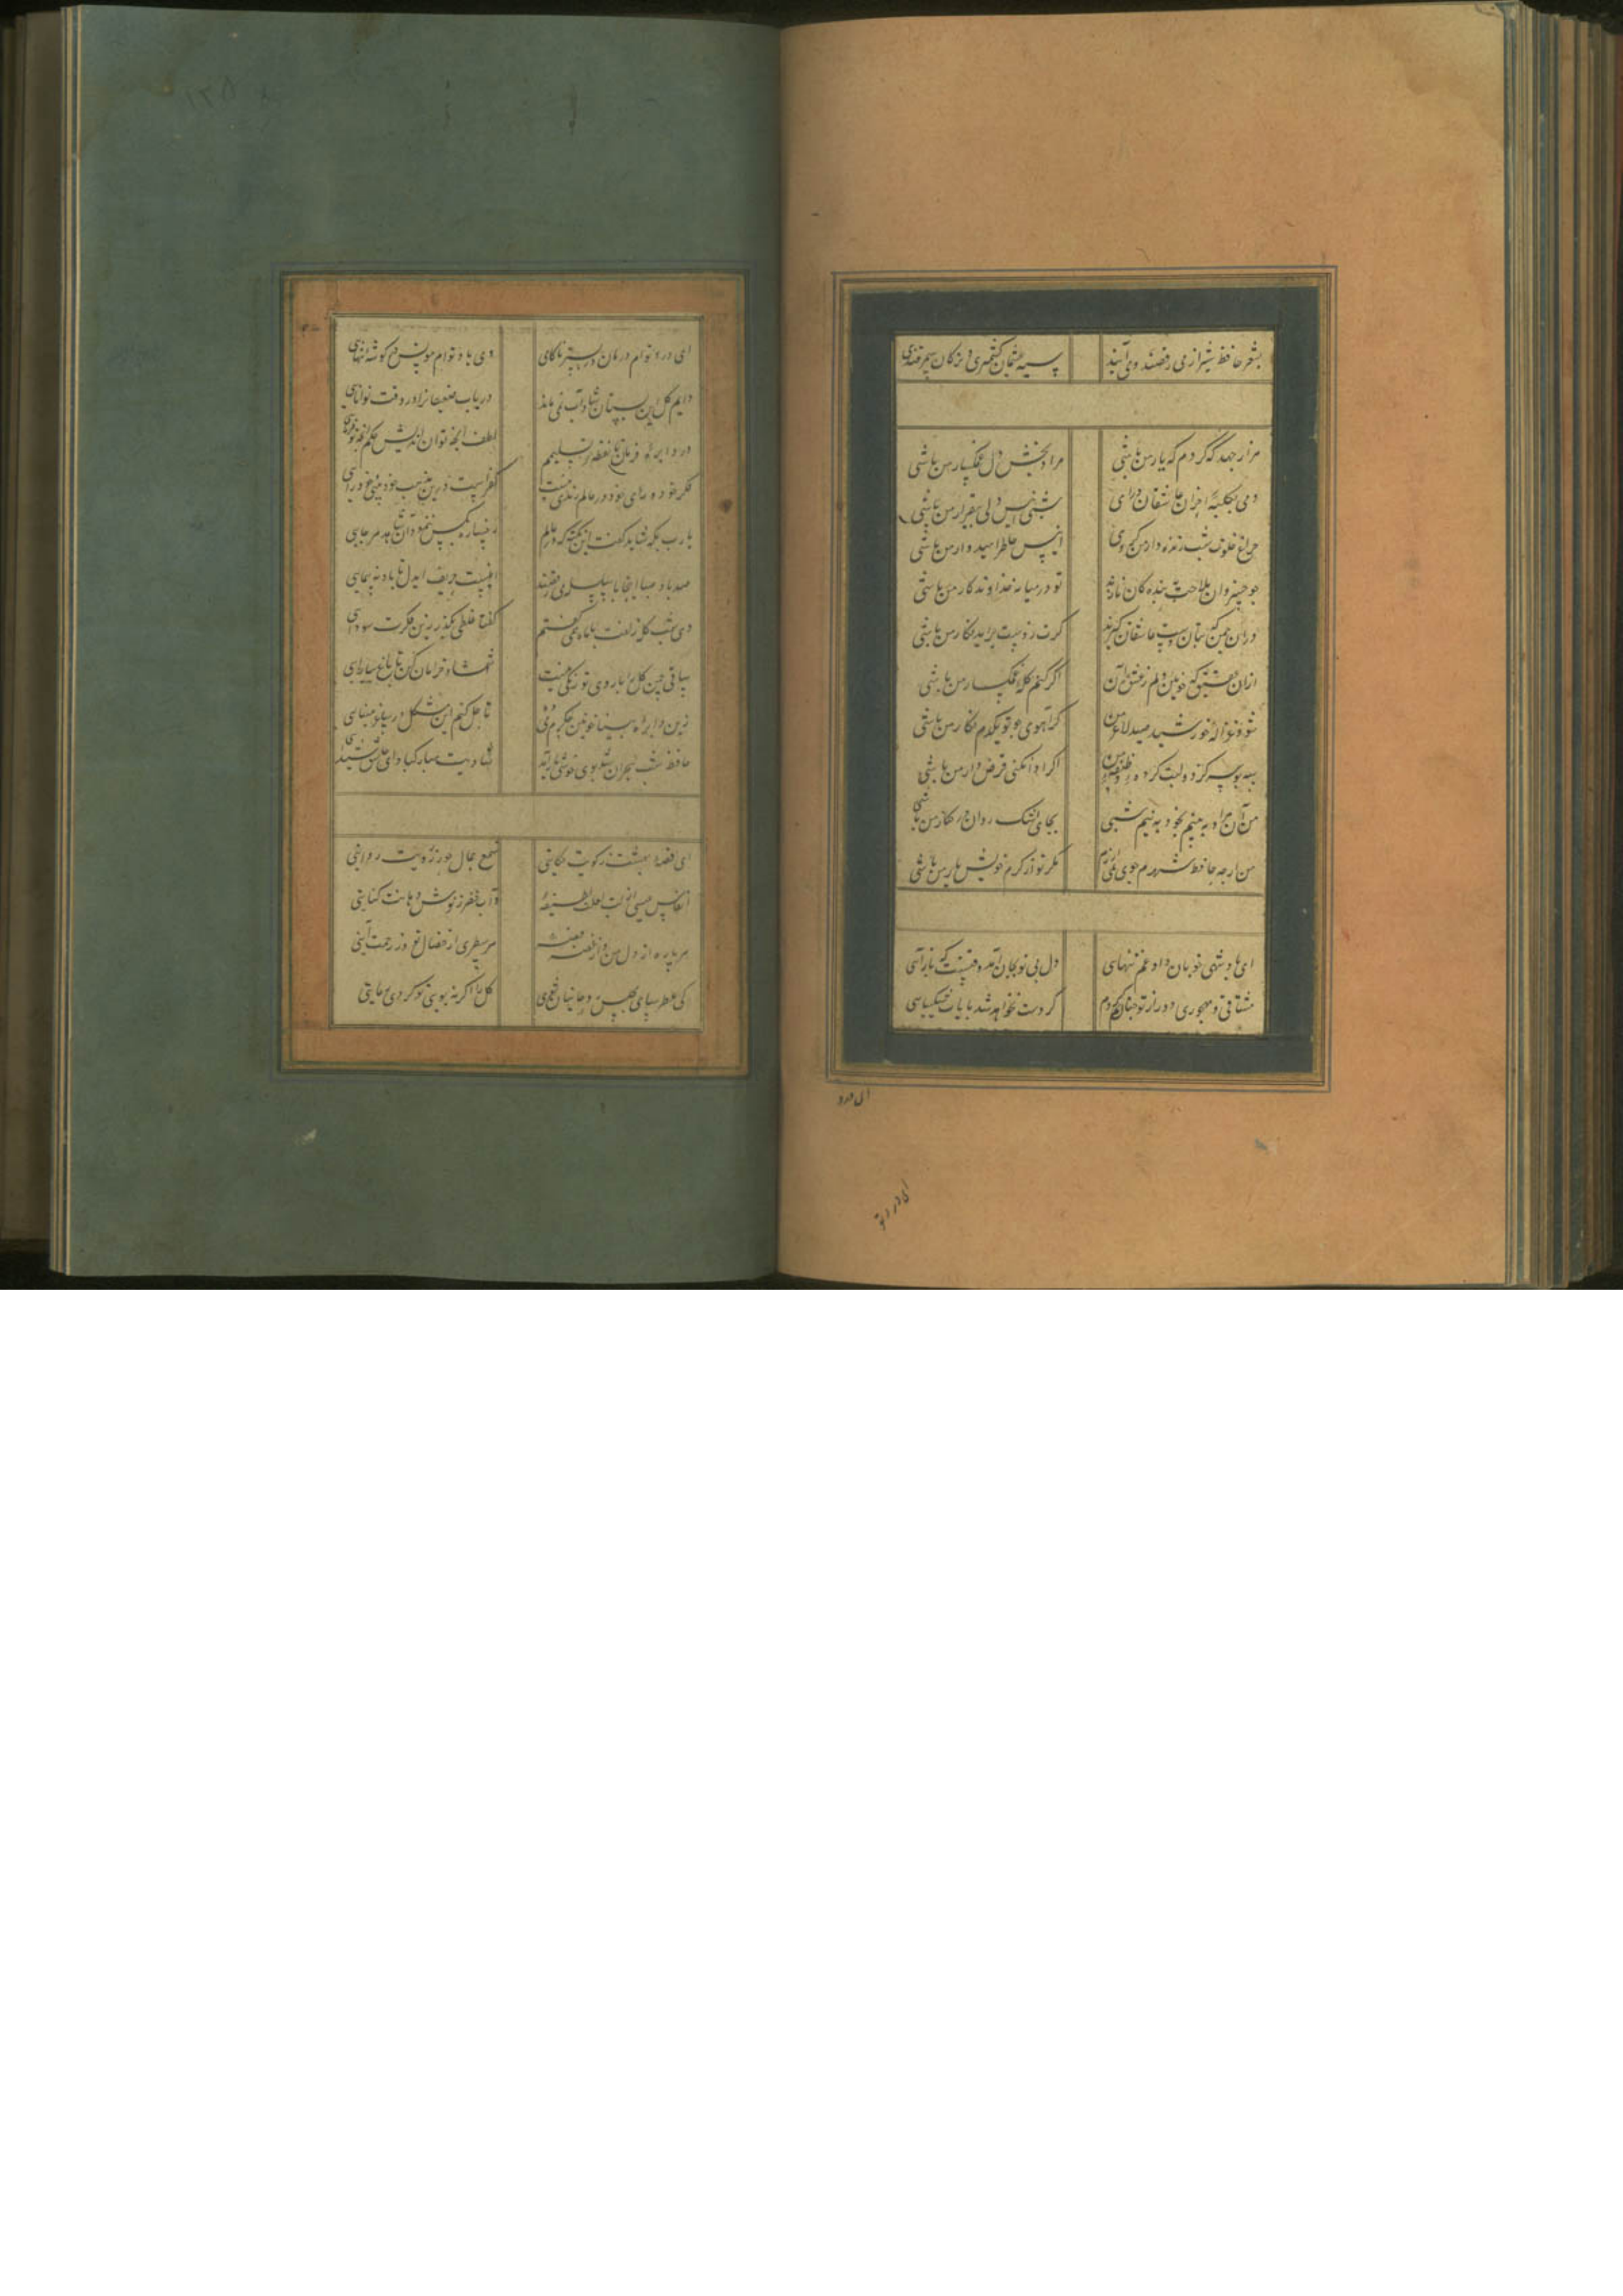 بشعر حافظ شیراز می رقصند و می آیند سیه چشمان کشمیری و ترکان سمرقندی
هزار جهد که کردم که یار من باشی مراد بخش دل غمگسار من باشی
دمی بکلبه احزان عاشقان در آی شبی انیس دل بیقرار من باشی
چراغ خلوت شب زنده دار من کردی انیس خاطر امیدوار من باشی
چو خسروان ملاحت به بندگان نازند تو در میانه خداوندگار من باشی
در آن چمن که بتان دست عاشقان گیرند گرت ز دست برآید نگار من باشی
از آن عقیق که خونین دلم ز عشق آن اگر کنم گله غمگسار من باشی
شود غزاله خورشید صید لاغر من گر آهوی چو تو یکدم نگار من باشی
سه بوسه کز دو لبت کرده وظیفه من اگر ادا نکنی قرض دار من باشی
من آن مراد به بینم بخود به نیم شبی بجای اشک روان در کنار من باشی
من ار چه حافظ شهرم جوی نمی ارزم مگر تو از کرم خویش یار من باشی
ای پادشهی خوبان داد از غم تنهای دل بی تو بجان آمد وقتست که باز آی
مشتاقی و مهجوری دور از تو چنانم کرد کز دست نخواهد شد پایاب شکیبای
ای درد
ای درد تو
ای درد توام درمان در بستر ناکامی وی یاد توام مونس در گوشه تنهای
دایم گل این بستان شاداب نمی ماند دریاب ضعیفانرا در وقت توانای
در دایره فرمان ما نقطه تسلیمیم لطف آنچه تو اندیشی حکم آنچه تو فرمای
فکر خود و رای خود در عالم رندی نیست کفراست درین مذهب خود بینی و خود رای
یا رب بکه شاید گفت این نکته که در عالم رخساره بکس ننمود آن شاهد هر جایی
صد باد صبا اینجا با سلسله می رقصند اینست حریف ایدل تا باد نه پیمایی
دی شب گله زلفت با باد همی گفتم گفتا غلطی بگذر زین فکرت سودای
ساقی چمن گل را بی روی تو رنگی نیست شمشاد خرامان کن تا باغ بیارایی
زین دایره مینا خونین جگرم می ده تا حل کنم این مشکل در ساغر مینای
حافظ شب هجران شد بوی خوش یار آمد شادیت مبارکباد ای عاشق شیدای
ای قصه بهشت ز کویت حکایتی شمع جمال حور ز رویت روایتی
انفاس عیسی از لب لعلت لطیفه و آب خضر ز نوش دهانت کنایتی
هر پاره از دل من و از غصه قصه هر سطری از خصال تو وز رحمت آیتی
کی عطر سای مجلس روحانیان شدی گل را اگر نه بوی تو کردی رعایتی